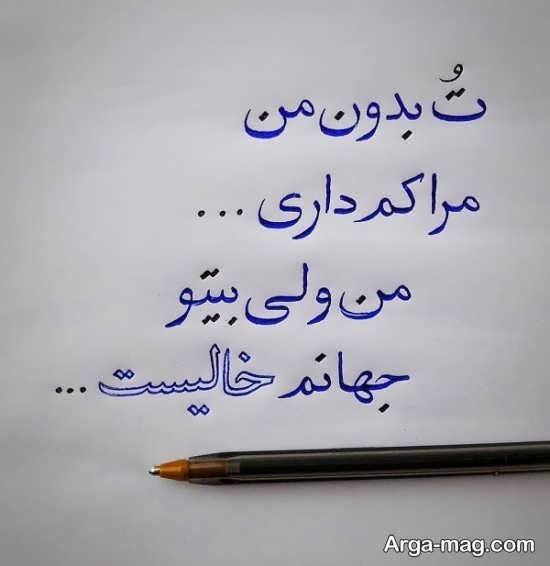 تُ بدون من
مرا کم داری ...
من ولی بیتو
جهانم خالیست ...
Arga-mag.com